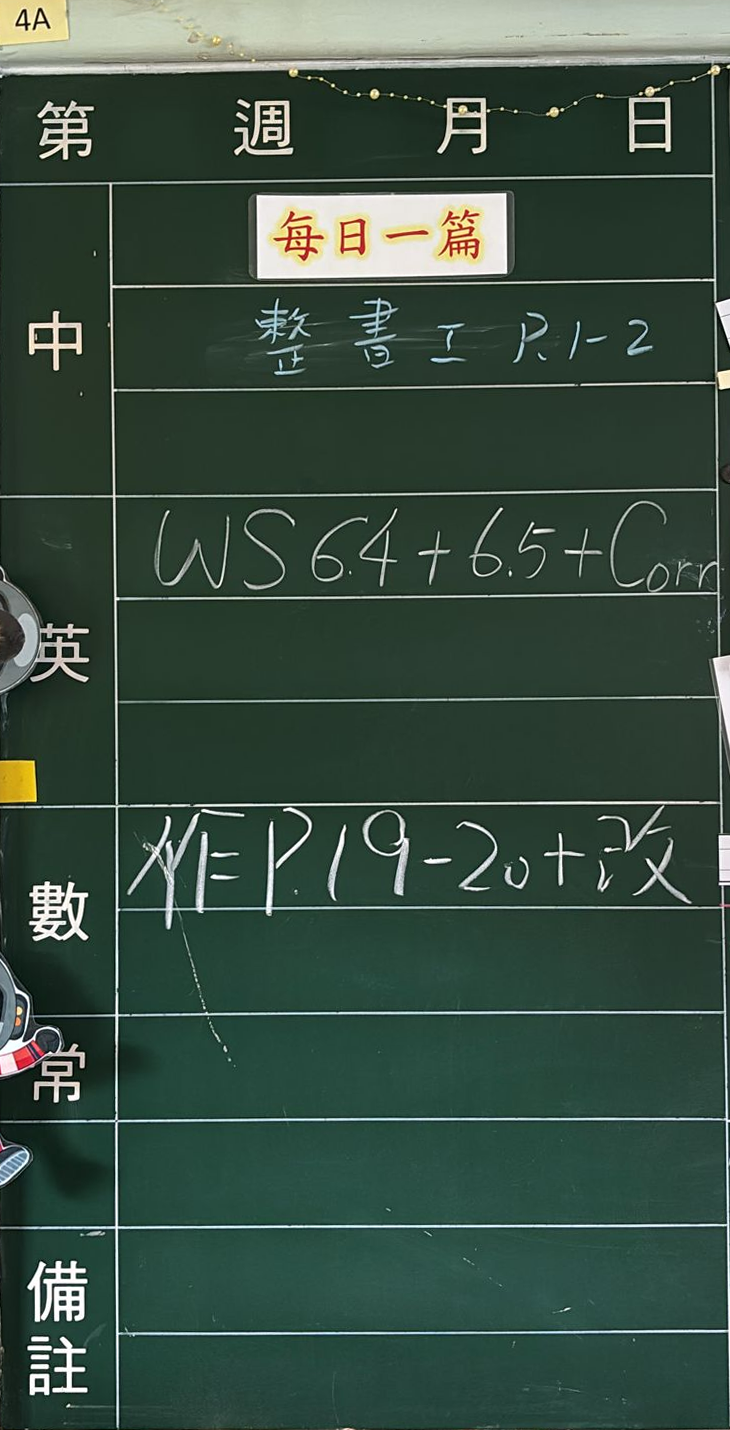 4A
第 週 月 日
中
每日一篇
整書工 P.1-2
英
WS 6.4 + 6.5 + Corr
數
作 P.19-20 + 改
常
備註